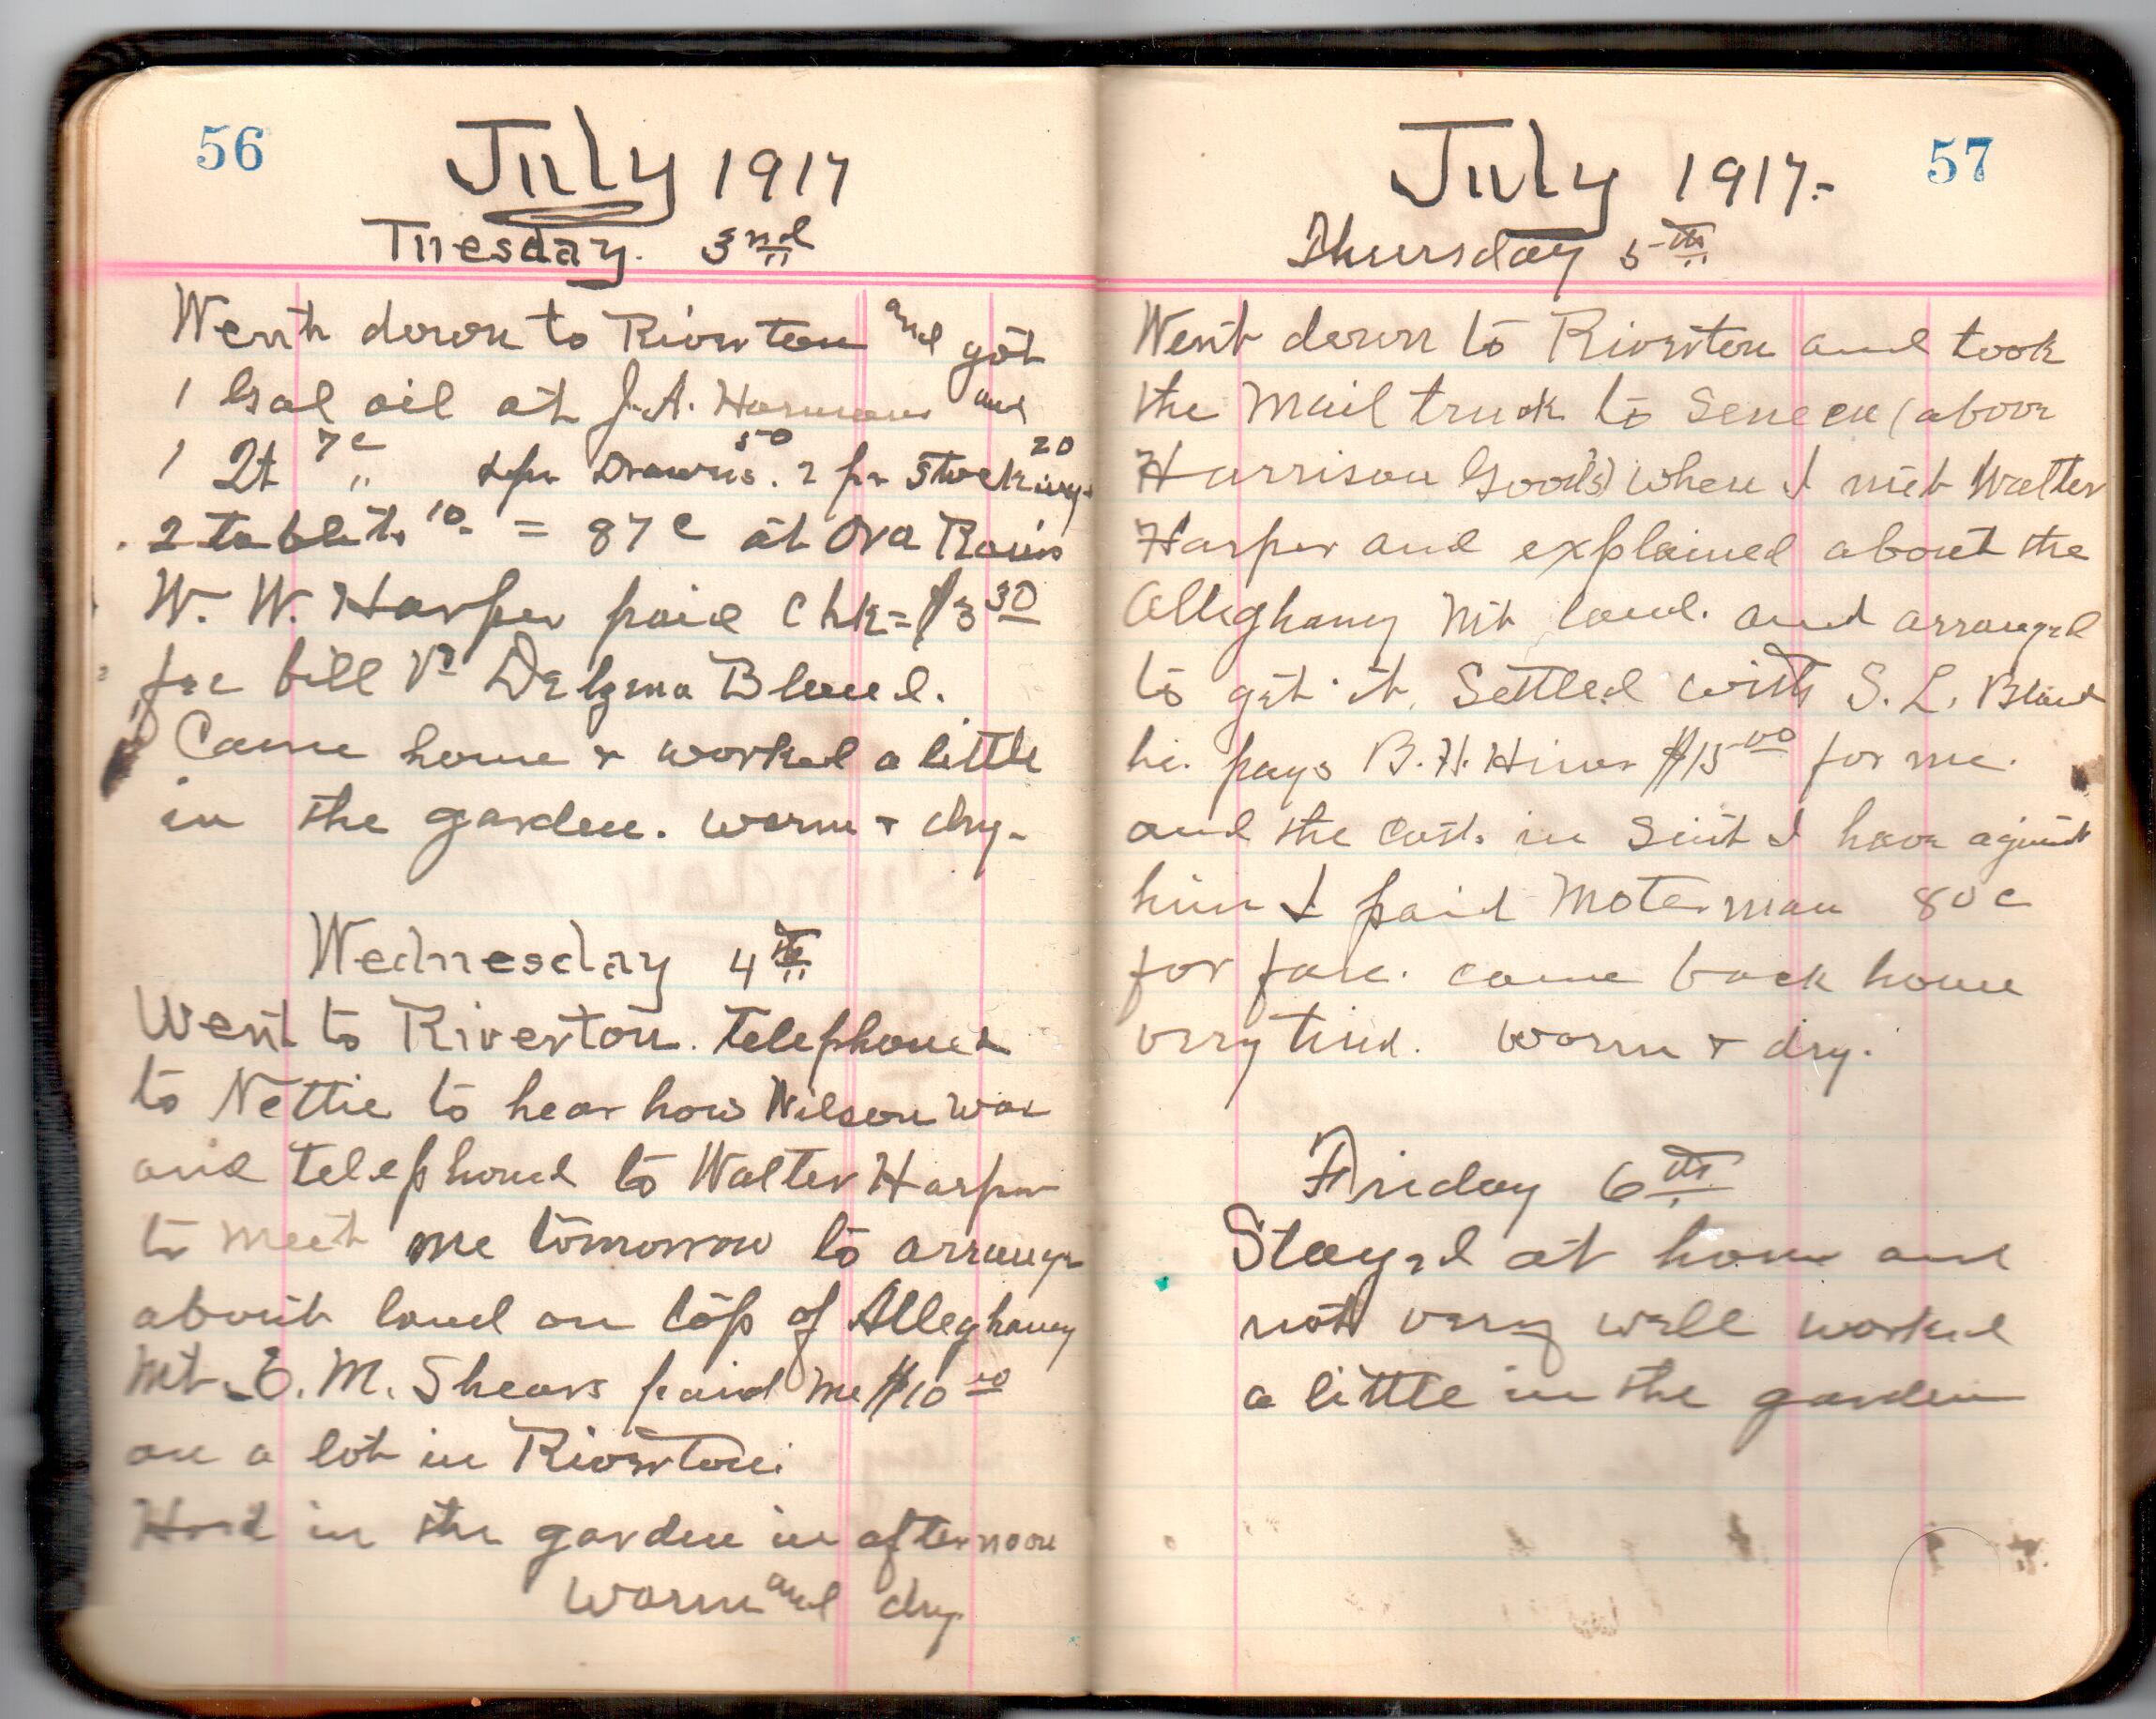 56
July 1917
Tuesday. 3nd
Went down to Riverton and got
1 Gal oil at J. A. Harmans and
1 Qt 7c " 1 pr Drawers. 50 2 pr Stockings 20
2 tablets 10. = 87c at Ova
W. W. Harper paid Chk = $3 30
for bill vs Delzena Bland.
Came home & worked a little
in the garden. warm & dry.
Wednesday 4th
Went to Riverton. telephoned
to Nettie to hear how Wilson was
and telephoned to Walter Harper
to meet me tomorrow to arrange
about land on top of Alleghany
Mt. E. M. Shears paid me $10 00
on a lot in Riverton.
Hoed in the garden in afternoon
warm and dry.
57
July 1917.-
Thursday 5th
Went down to Riverton and took
the Mail truck to Seneca (above
Harrison Goods) where I met Walter
Harper and explained about the
Alleghany Mt land. and arranged
to get it. Settled with S. L. Bland
he pays B. H. Hiner $15 00 for me.
and the cost. in Suit I have against
him I paid Moterman 80c
for fare. came back home
very tired. warm & dry.
Friday 6th
Stayed at home and
not very well worked
a little in the garden